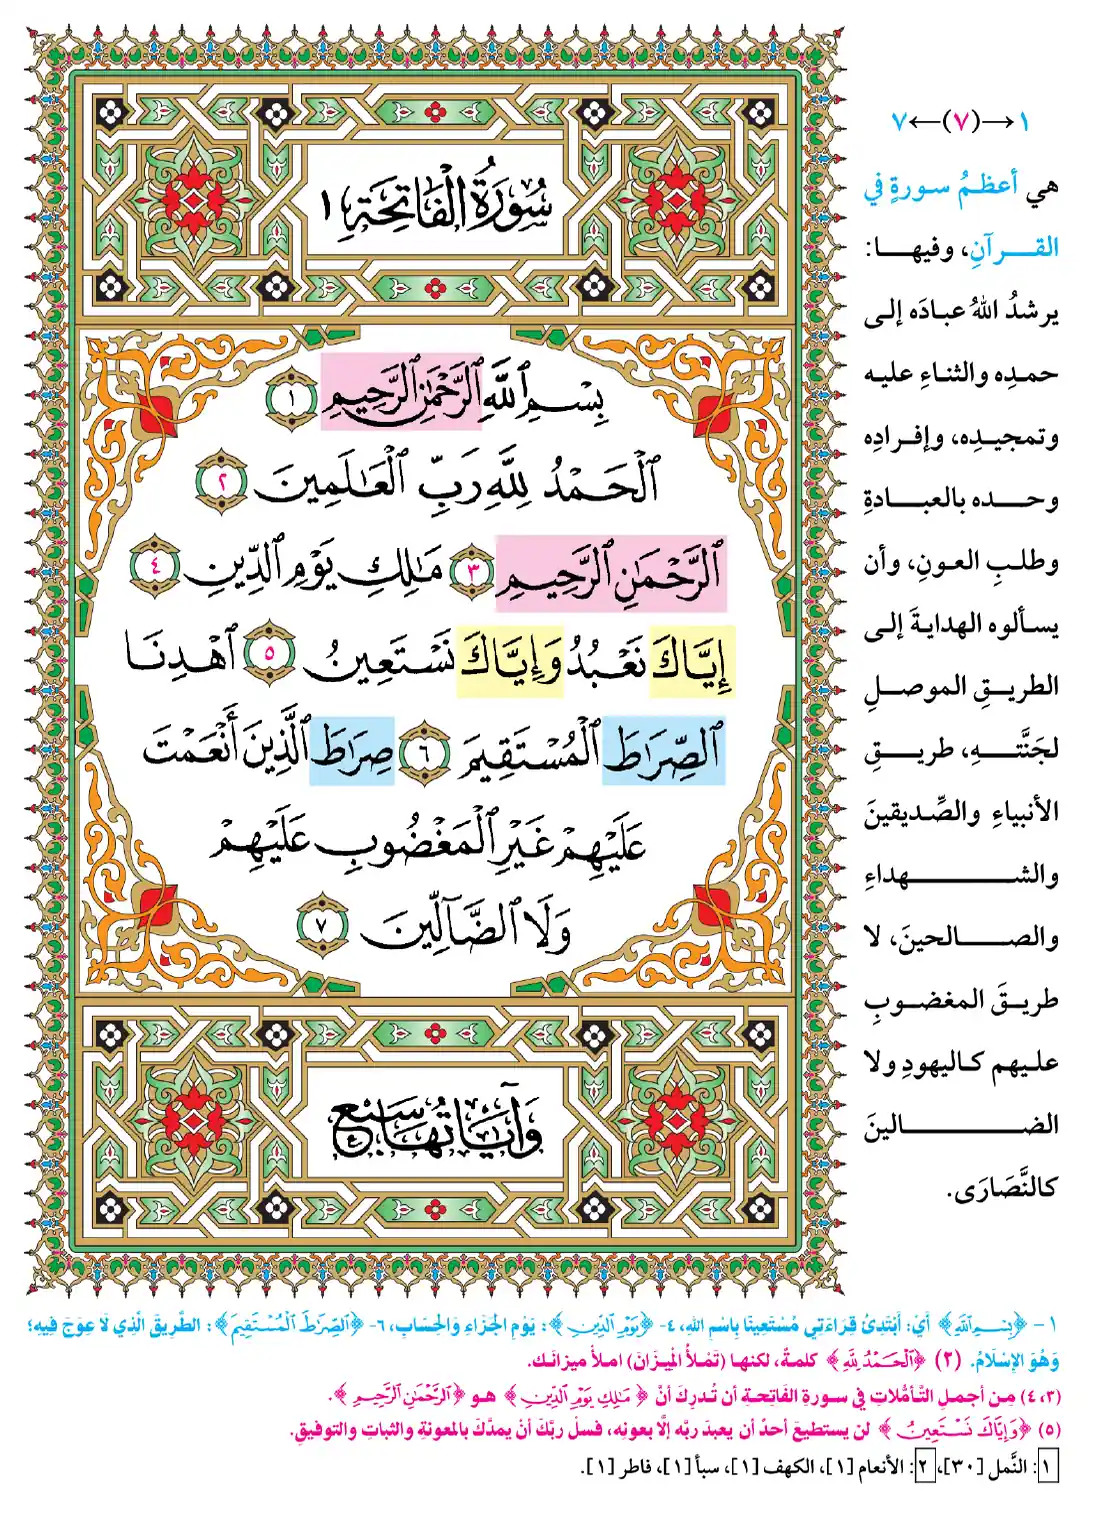 سُورَةُ الْفَاتِحَةِ ١
بِسْمِ ٱللَّهِ ٱلرَّحْمَٰنِ ٱلرَّحِيمِ ١
ٱلْحَمْدُ لِلَّهِ رَبِّ ٱلْعَٰلَمِينَ ٢
ٱلرَّحْمَٰنِ ٱلرَّحِيمِ ٣ مَٰلِكِ يَوْمِ ٱلدِّينِ ٤
إِيَّاكَ نَعْبُدُ وَإِيَّاكَ نَسْتَعِينُ ٥ ٱهْدِنَا
ٱلصِّرَٰطَ ٱلْمُسْتَقِيمَ ٦ صِرَٰطَ ٱلَّذِينَ أَنْعَمْتَ
عَلَيْهِمْ غَيْرِ ٱلْمَغْضُوبِ عَلَيْهِمْ
وَلَا ٱلضَّآلِّينَ ٧
وَآيَاتُهَا سَبْعٌ
١→(٧)←٧
هي أعظمُ سورةٍ في
القرآنِ، وفيها:
يرشدُ اللهُ عبادَه إلى
حمدِه والثناءِ عليه
وتمجيدِه، وإفرادِه
وحده بالعبادةِ
وطلبِ العونِ، وأن
يسألوه الهدايةَ إلى
الطريقِ الموصلِ
لجَنَّتِه، طريقِ
الأنبياءِ والصِّديقينَ
والشهداءِ
والصالحينَ، لا
طريقَ المغضوبِ
عليهم كاليهودِ ولا
الضالينَ
كالنَّصَارَى.
١- ﴿بِسْمِ ٱللَّهِ﴾ أَيْ: أَبْتَدِئُ قِرَاءَتِي مُسْتَعِينًا بِاسْمِ اللهِ، ٤- ﴿يَوْمِ ٱلدِّينِ﴾: يَوْمِ الجَزَاءِ وَالحِسَابِ، ٦- ﴿ٱلصِّرَٰطَ ٱلْمُسْتَقِيمَ﴾: الطَّرِيقَ الَّذِي لَا عِوَجَ فِيهِ؛
وَهُوَ الإِسْلَامُ. (٢) ﴿ٱلْحَمْدُ لِلَّهِ﴾ كلمةٌ، لكنها (تَمْلَأُ المِيزَانَ) املأ ميزانَك.
(٣، ٤) مِن أجملِ التَّأمُّلاتِ في سورةِ الفَاتحةِ أن تُدركَ أنْ ﴿مَٰلِكِ يَوْمِ ٱلدِّينِ﴾ هو ﴿ٱلرَّحْمَٰنِ ٱلرَّحِيمِ﴾.
(٥) ﴿وَإِيَّاكَ نَسْتَعِينُ﴾ لن يستطيعَ أحدٌ أن يعبدَ ربَّه إلَّا بعونِه، فسلْ ربَّكَ أنْ يمدَّكَ بالمعونةِ والثباتِ والتوفيقِ.
١: النَّمل [٣٠]، ٢: الأنعام [١]، الكهف [١]، سبأ [١]، فاطر [١].